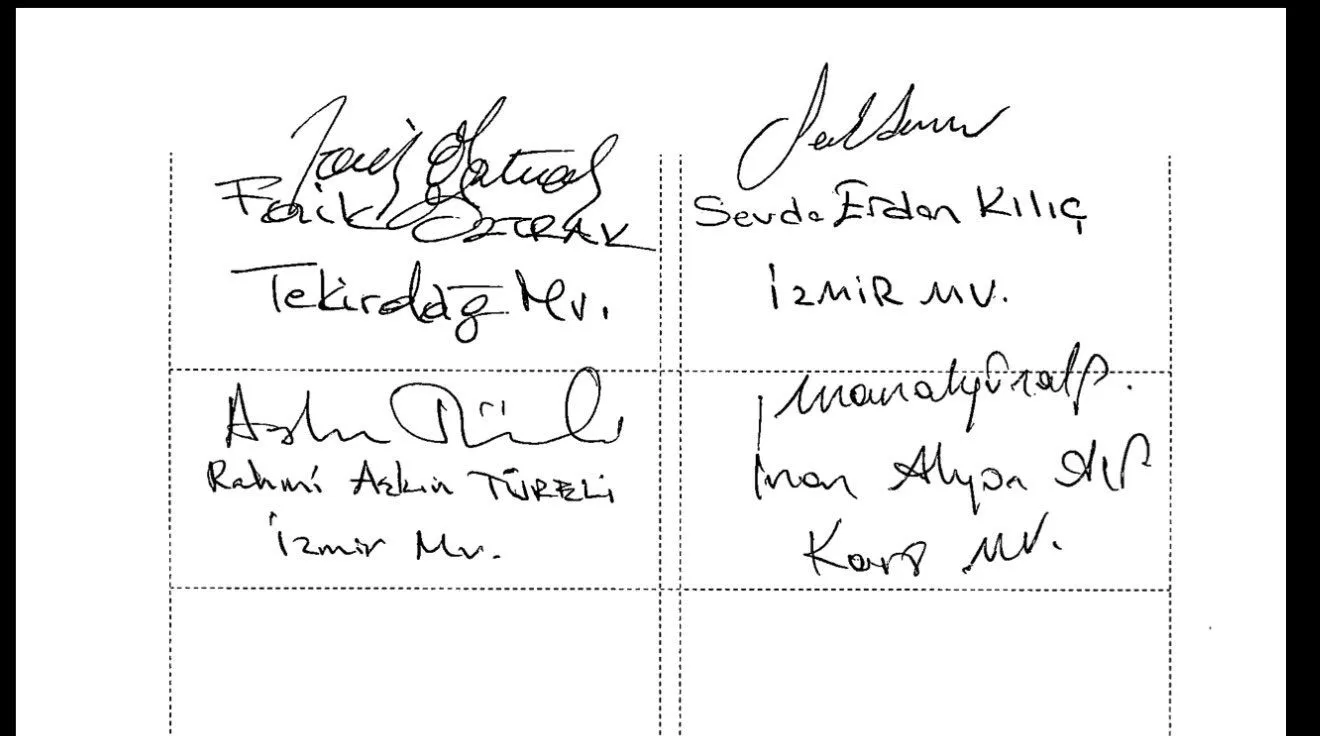 Faik Öztrak
Faik ÖZTRAK
Tekirdağ Mv.
Sevda Erdan KILIÇ
İZMİR MV.
Rahmi Aşkın TÜRELİ
İzmir Mv.
İnan Akgün Alp
Kars MV.